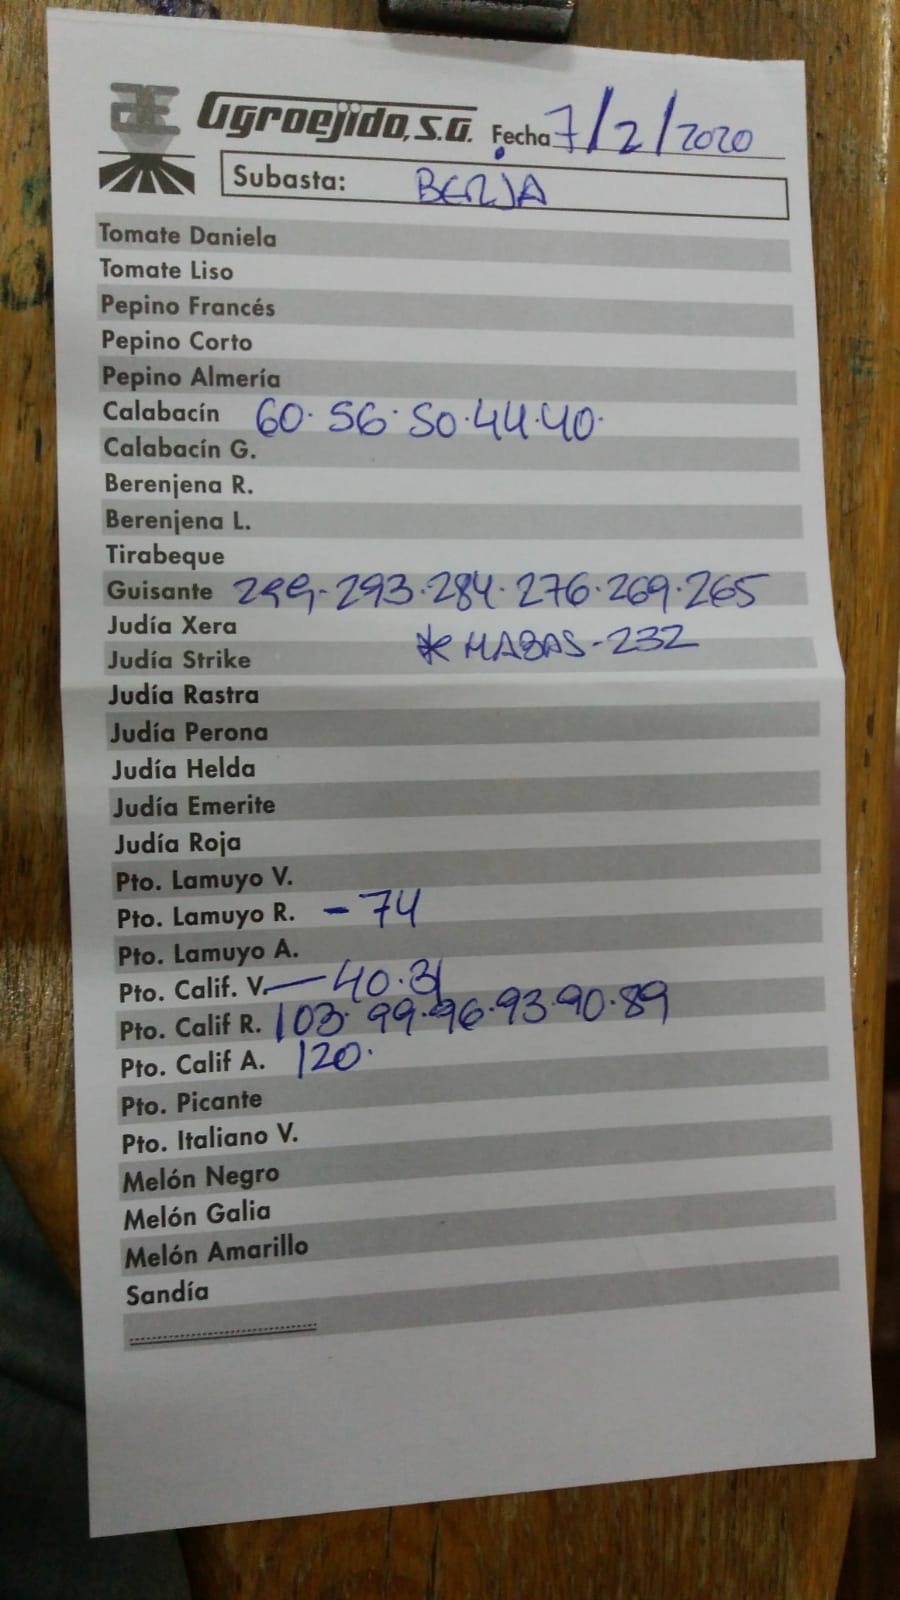 Agroejido, S.A. Fecha 7/2/2020
Subasta: BERJA
Tomate Daniela
Tomate Liso
Pepino Francés
Pepino Corto
Pepino Almería
Calabacín 60. 56. 50. 44. 40.
Calabacín G.
Berenjena R.
Berenjena L.
Tirabeque
Guisante 299. 293. 284. 276. 269. 265
Judía Xera
* HABAS - 232
Judía Strike
Judía Rastra
Judía Perona
Judía Helda
Judía Emerite
Judía Roja
Pto. Lamuyo V.
Pto. Lamuyo R. - 74
Pto. Lamuyo A.
Pto. Calif. V. — 40. 31
Pto. Calif R. 103. 99. 96. 93. 90. 89
Pto. Calif A. 120.
Pto. Picante
Pto. Italiano V.
Melón Negro
Melón Galia
Melón Amarillo
Sandía